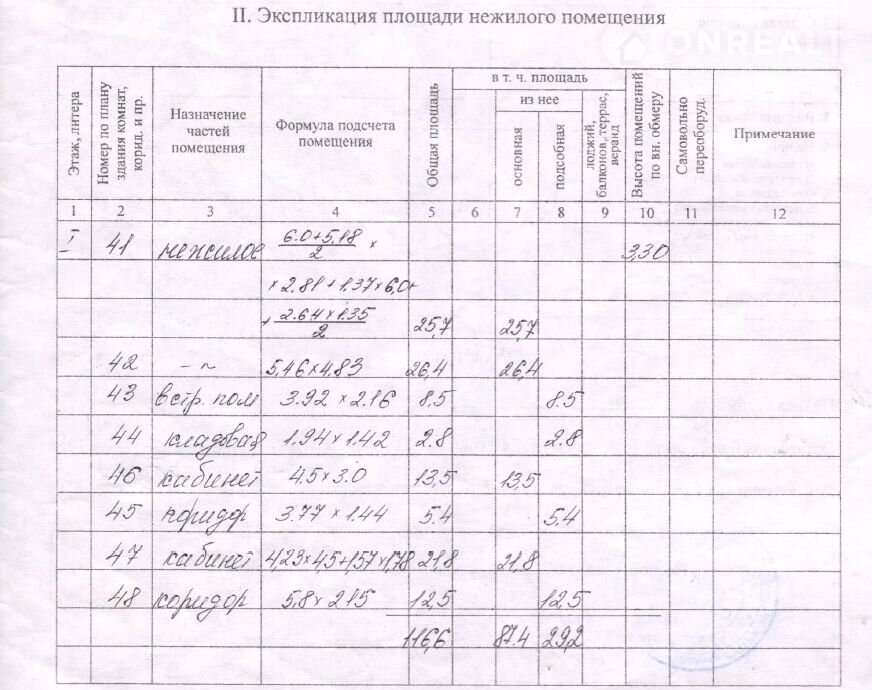 II. Экспликация площади нежилого помещения
ONREALT
Этаж, литера
Номер по плану здания комнат, корид. и пр.
Назначение частей помещения
Формула подсчета помещения
Общая площадь
в т. ч. площадь
из нее
основная
подсобная
лоджий, балконов, террас, веранд
Высота помещений по вн. обмеру
Самовольно переоборуд.
Примечание
1 2 3 4 5 6 7 8 9 10 11 12
I 41 нежилое (6.0+5,18)/2 × 3,30
× 2.81 + 1.37 × 6,0+
+ (2.64 × 1.35)/2 25,7 25,7
42 -"- 5,46 × 4,83 26,4 26,4
43 встр. пом 3.92 × 2.16 8.5 8.5
44 кладовая 1.94 × 1.42 2.8 2.8
46 кабинет 4.5 × 3.0 13,5 13,5
45 коридор 3.77 × 1.44 5.4 5.4
47 кабинет 4,23×4,5+1,57×1,78 21,8 21,8
48 коридор 5,8 × 2.15 12,5 12,5
116,6 87.4 29,2